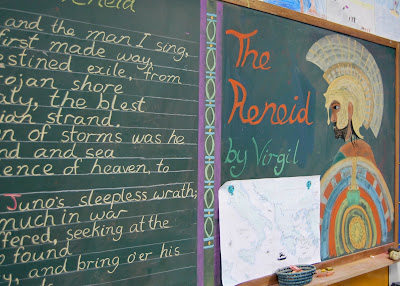 Reneid
and the man I sing,
first made way,
estined exile, from
rojan shore
aly, the blest
ian strand.
n of storms was he
nd and sea
lence of heaven, to
Juno's sleepless wrath,
much in war
ffered, seeking at the
found
y, and bring o'er his
The
Aeneid
by Virgil